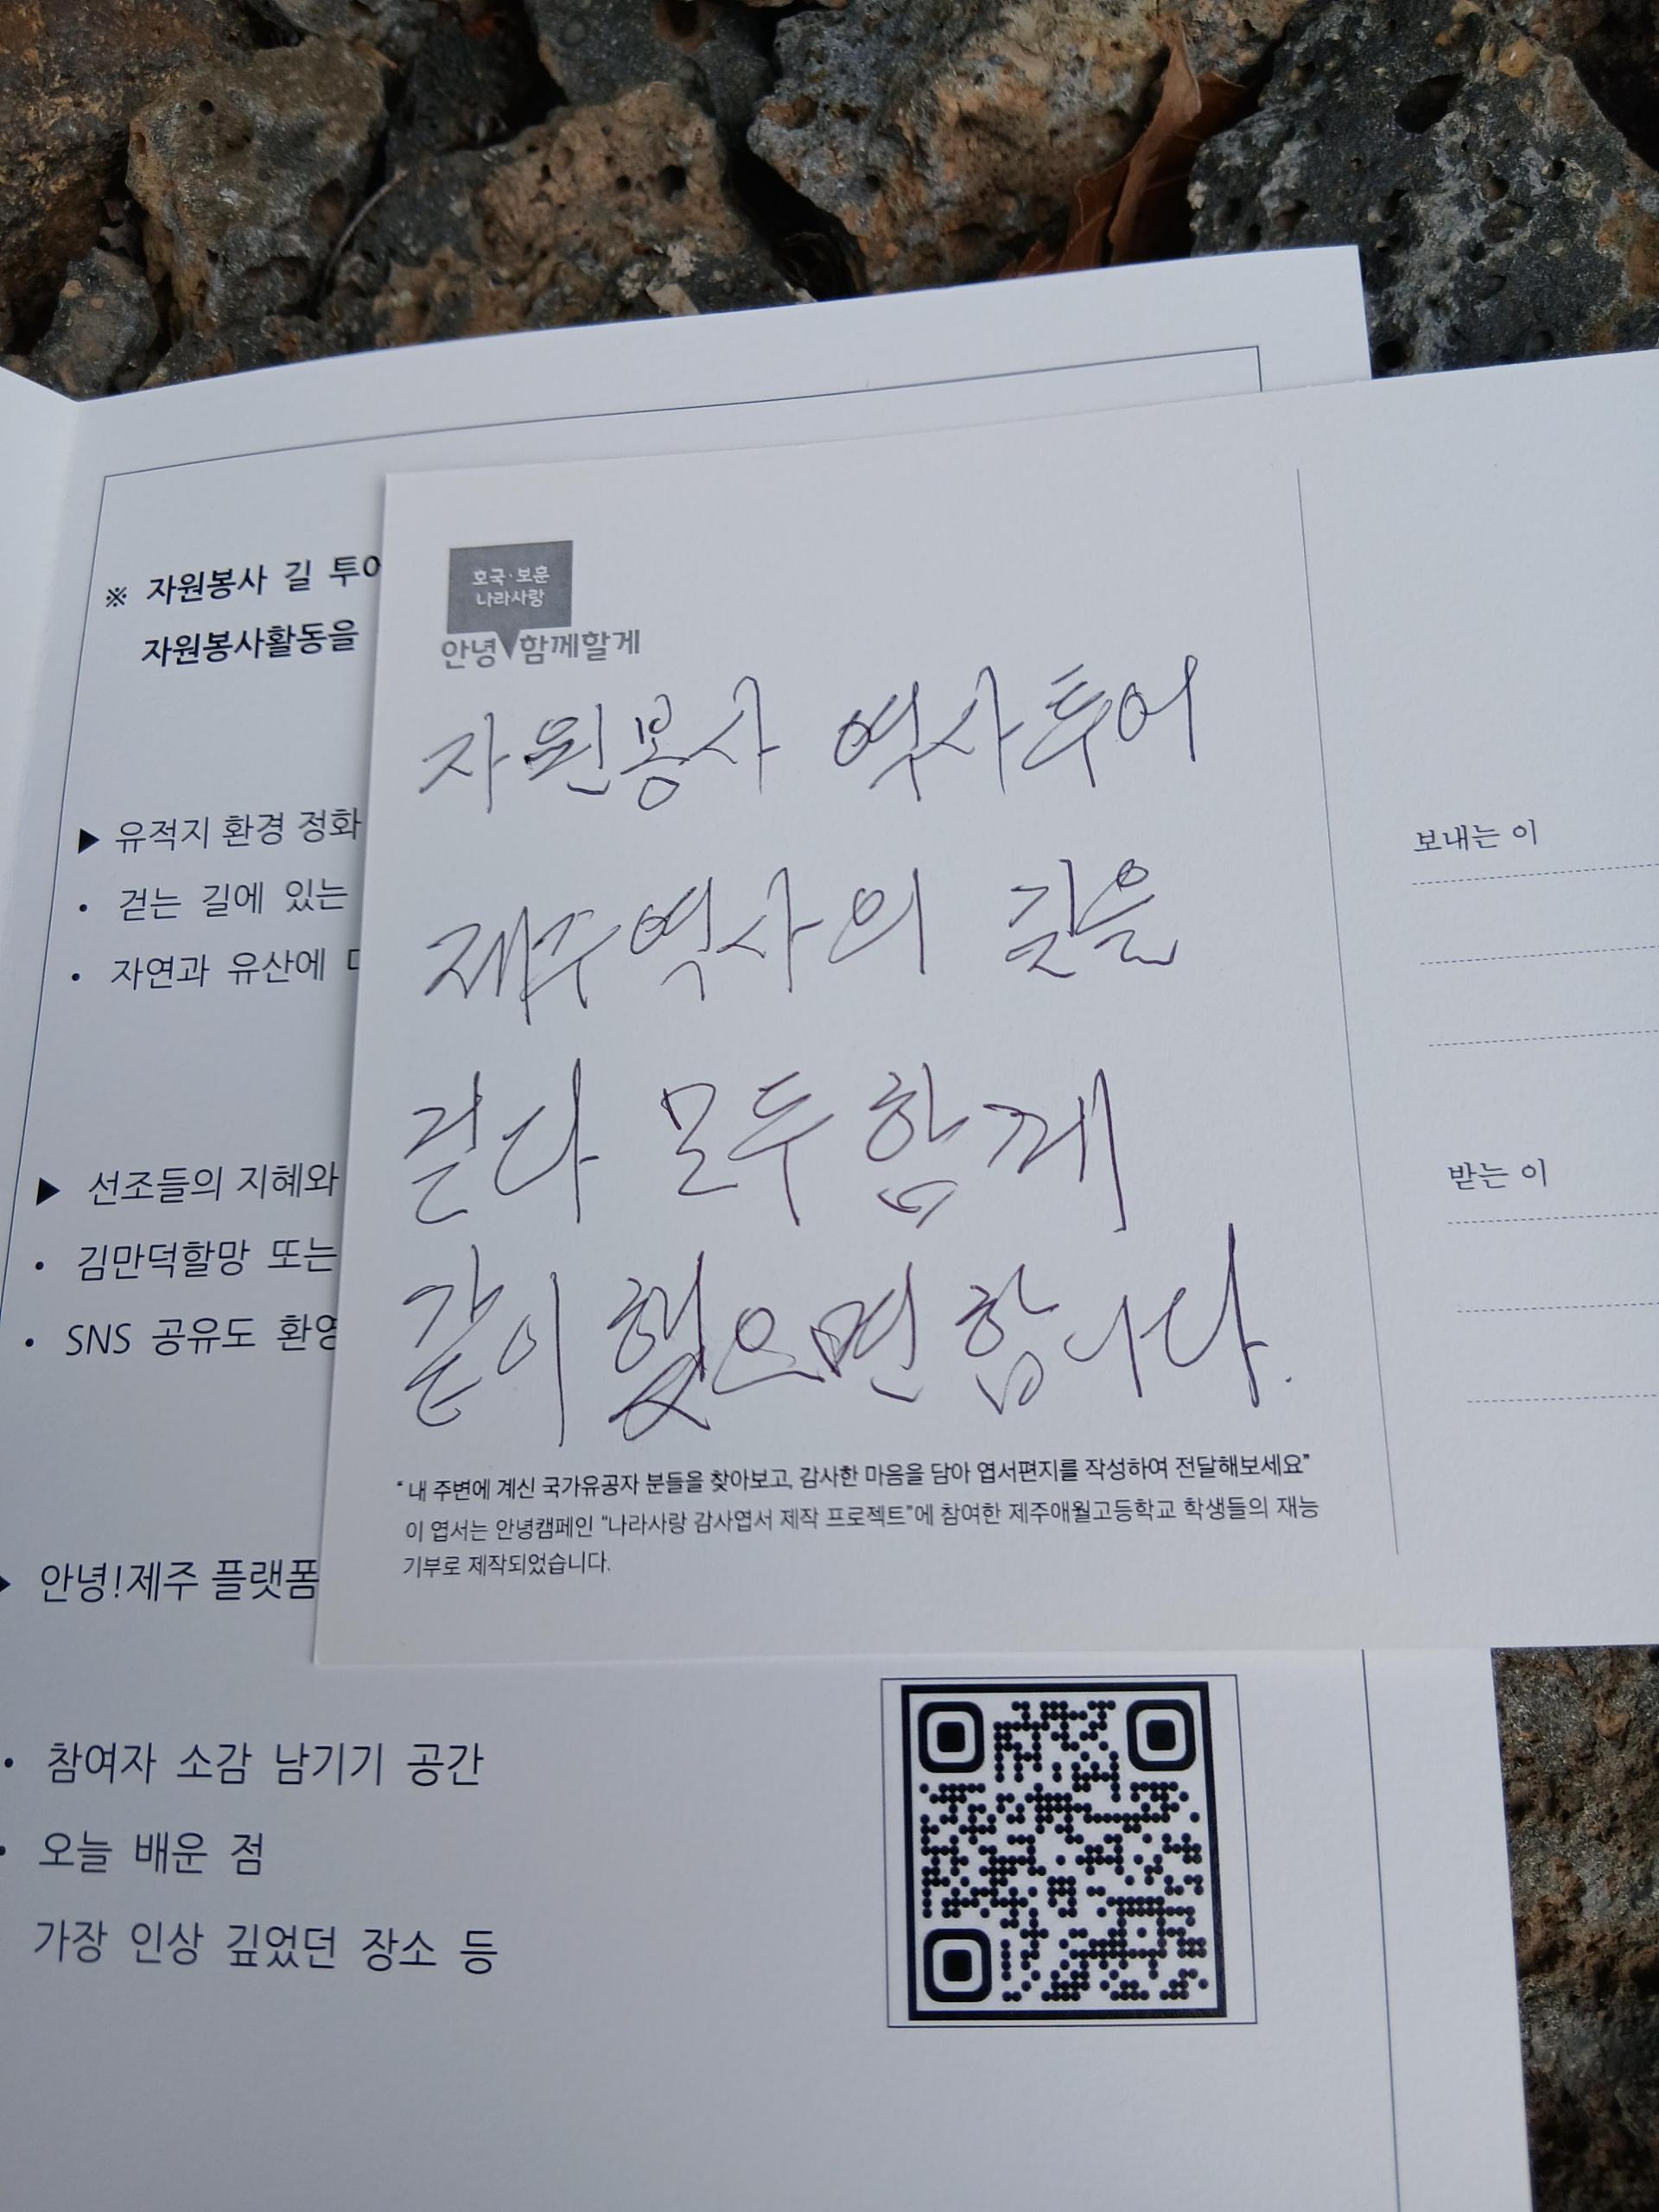 ※ 자원봉사 길 투어
자원봉사활동을
▶ 유적지 환경 정화
• 걷는 길에 있는
• 자연과 유산에
▶ 선조들의 지혜와
• 김만덕할망 또는
• SNS 공유도 환영
안녕!제주 플랫폼
• 참여자 소감 남기기 공간
• 오늘 배운 점
가장 인상 깊었던 장소 등
호국·보훈
나라사랑
안녕 함께할게
자원봉사 역사투어
제주역사의 길을
걷다 모두 함께
같이 했으면 합니다.
"내 주변에 계신 국가유공자 분들을 찾아보고, 감사한 마음을 담아 엽서편지를 작성하여 전달해보세요"
이 엽서는 안녕캠페인 "나라사랑 감사엽서 제작 프로젝트"에 참여한 제주애월고등학교 학생들의 재능
기부로 제작되었습니다.
보내는 이
받는 이